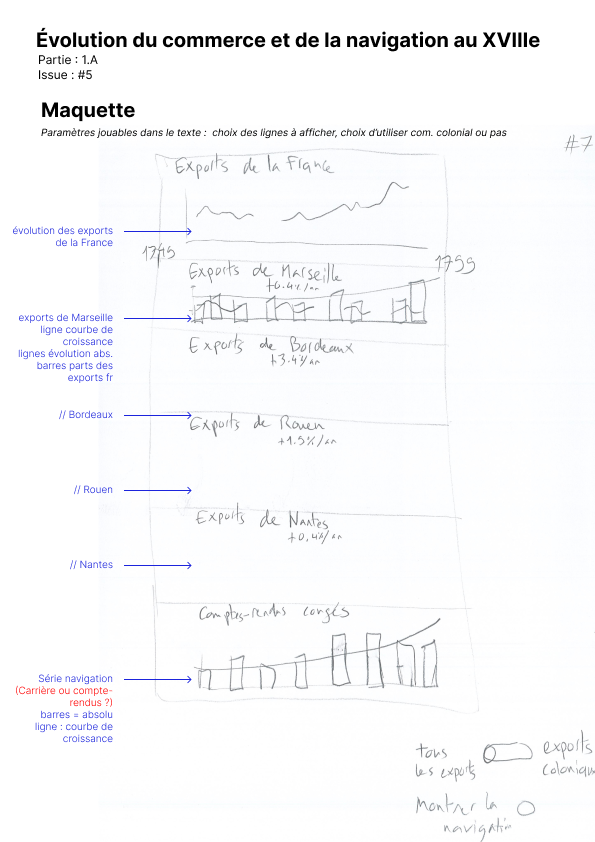 Évolution du commerce et de la navigation au XVIIIe
Partie : 1.A
Issue : #5
Maquette
Paramètres jouables dans le texte : choix des lignes à afficher, choix d'utiliser com. colonial ou pas
#7
Exports de la France
évolution des exports
de la France
1715
1799
Exports de Marseille
+0.4%/an
exports de Marseille
ligne courbe de
croissance
lignes évolution abs.
barres parts des
exports fr
Exports de Bordeaux
+3.4%/an
// Bordeaux
Exports de Rouen
+1.5%/an
// Rouen
Exports de Nantes
+0.4%/an
// Nantes
Comptes-rendus congés
Série navigation
(Carrière ou compte-
rendus ?)
barres = absolu
ligne : courbe de
croissance
tous
les exports
exports
coloniaux
Montrer la
navigation